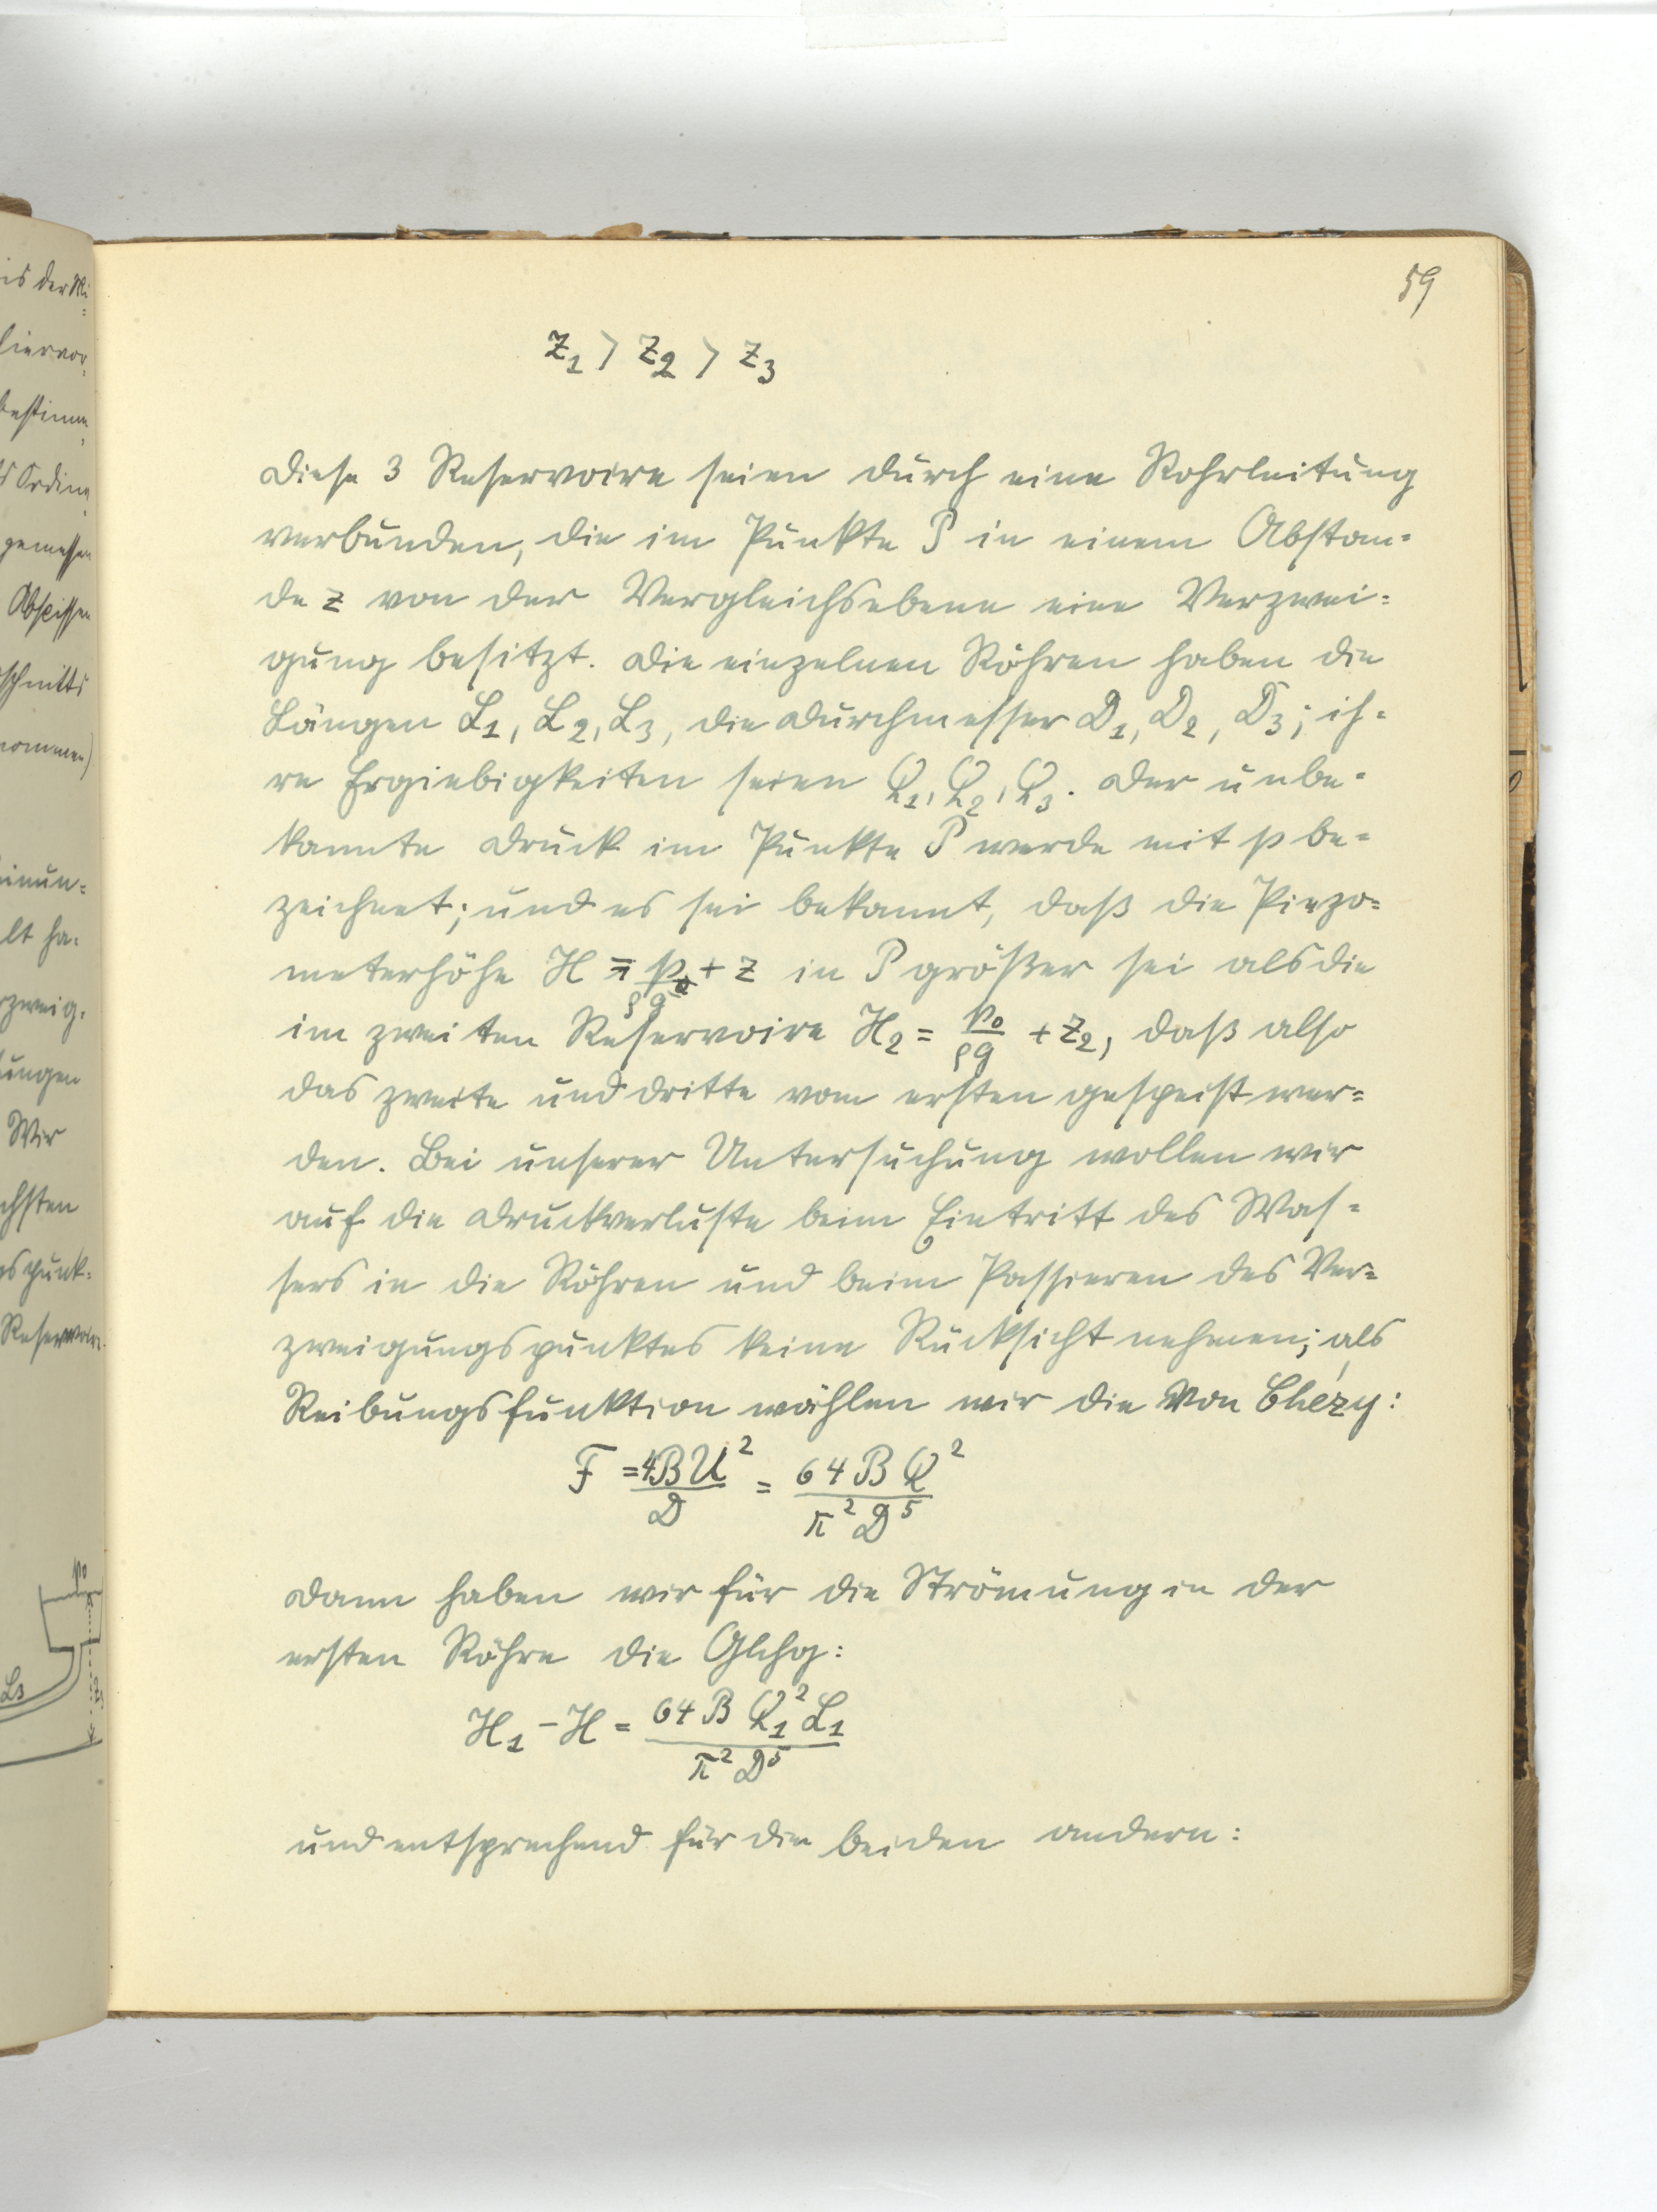 59
z₁ > z₂ > z₃
Diese 3 Reservoire seien durch eine Rohrleitung
verbunden, die im Punkte P in einem Abstan-
de z von der Vergleichsebene eine Verzwei-
gung besitzt. Die einzelnen Röhren haben die
Längen L₁, L₂, L₃, die Durchmesser D₁, D₂, D₃; ih-
re Ergiebigkeiten seien Q₁, Q₂, Q₃. Der unbe-
kannte Druck im Punkte P werde mit p be-
zeichnet; und es sei bekannt, daß die Piezo-
meterhöhe H = p/ρg + z in P größer sei als die
im zweiten Reservoire H₂ = p₀/ρg + z₂, daß also
das zweite und dritte vom ersten gespeist wer-
den. Bei unserer Untersuchung wollen wir
auf die Druckverluste beim Eintritt des Was-
sers in die Röhren und beim Passieren des Ver-
zweigungspunktes keine Rücksicht nehmen; als
Reibungsfunktion wählen wir die von Chézy:
F = 4BU²/D = 64BQ²/π²D⁵
Dann haben wir für die Strömung in der
ersten Röhre die Glchg:
H₁ - H = 64BQ₁²L₁/π²D⁵
und entsprechend für die beiden andern: